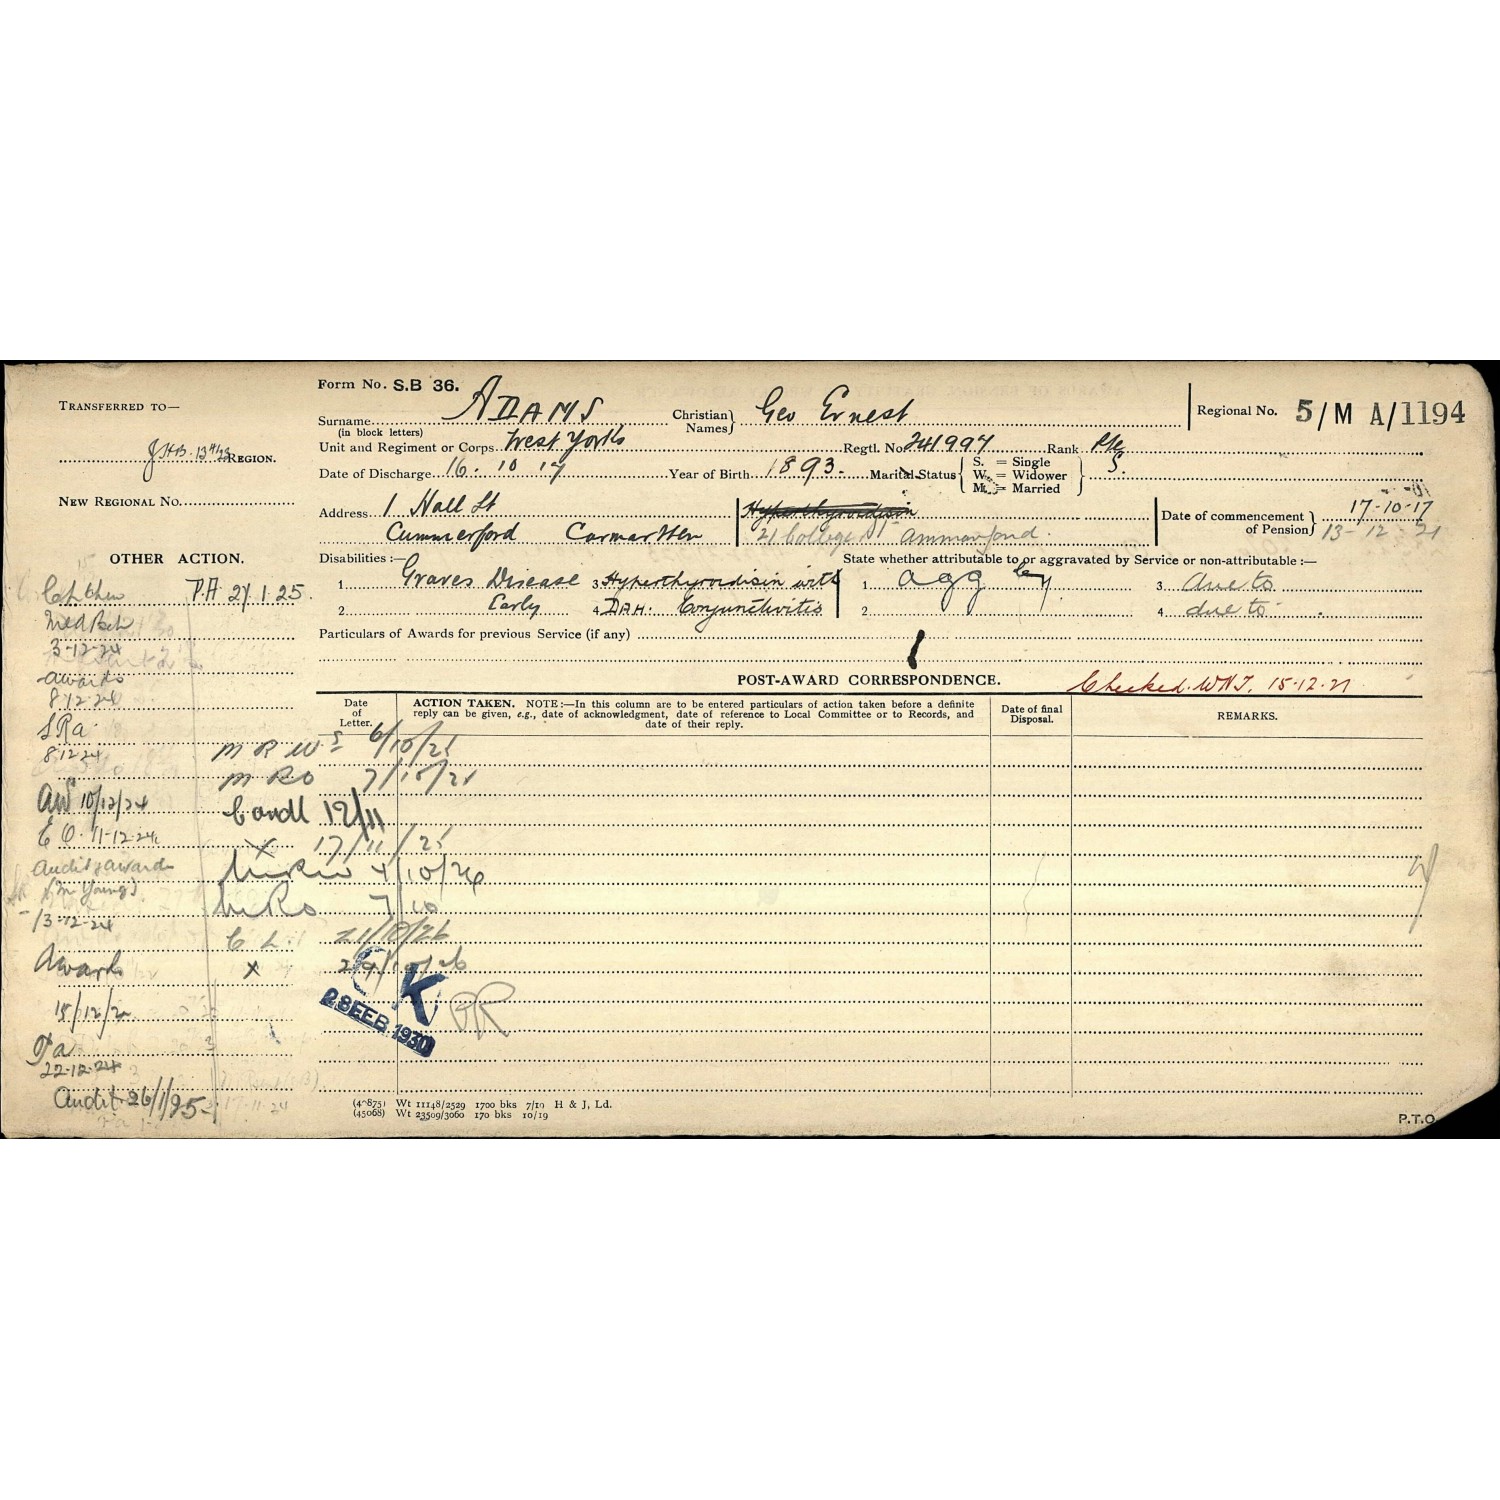 Form No. S.B 36.
TRANSFERRED TO—
Surname ADAMS Christian Names Geo Ernest Regional No. 5/M A/1194
(in block letters)
Unit and Regiment or Corps West Yorks Regtl. No. 241997 Rank Pte
REGION.
Date of Discharge 16. 10 17 Year of Birth 1893. Marital Status S. = Single W. = Widower M. = Married S.
NEW REGIONAL No.
Address 1 Hall St Hyperthyroidism Date of commencement of Pension 17-10-17
Cummerford Carmarthen 21 College St Ammanford. 13-12-21
OTHER ACTION.
Disabilities:— State whether attributable to or aggravated by Service or non-attributable:—
1 Graves Disease 3 Hyperthyroidism with 1 agg by 3 due to
2 Early 4 DAH. Conjunctivitis 2 4 due to
Particulars of Awards for previous Service (if any)
POST-AWARD CORRESPONDENCE.
Checked. WHJ. 15-12-21
Date of Letter.
ACTION TAKEN. NOTE:—In this column are to be entered particulars of action taken before a definite
reply can be given, e.g., date of acknowledgment, date of reference to Local Committee or to Records, and
date of their reply.
Date of final Disposal.
REMARKS.
P.A 27.1.25.
3-12-24
Awards
8.12.24
SRa
8.12.24
10/12/24
E O. 11-12-24
Audit awards
(Mr Young)
13-12-24
Awards
15/12/2
Pa
22-12-24
Audit 26/1/25
M R W S 6/10/25
M R O 7/10/25
12/11
X 17/11/25
4/10/26
7/10
C L 21/10/26
X 29/10/26
OK
28 FEB 1930
(40875) Wt 11148/2529 1700 bks 7/19 H & J, Ld.
(45068) Wt 23509/3060 170 bks 10/19
P.T.O.